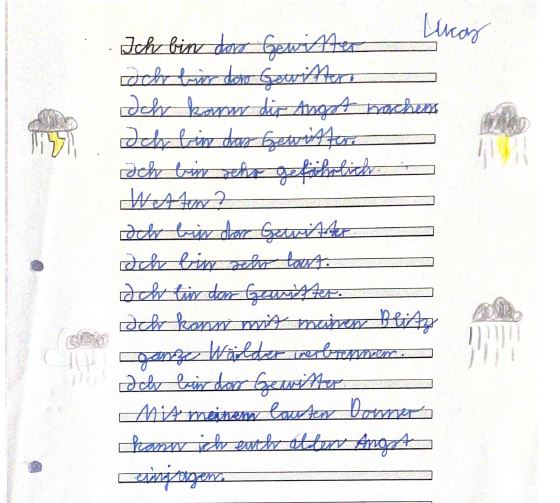 Lucas
Ich bin das Gewitter
Ich bin das Gewitter.
Ich kann dir Angst machen.
Ich bin das Gewitter.
Ich bin sehr gefährlich.
Wetten?
Ich bin das Gewitter.
Ich bin sehr laut.
Ich bin das Gewitter.
Ich kann mit meinen Blitz
ganze Wälder verbrennen.
Ich bin das Gewitter
Mit meinem lauten Donner
kann ich euch allen Angst
einjagen.